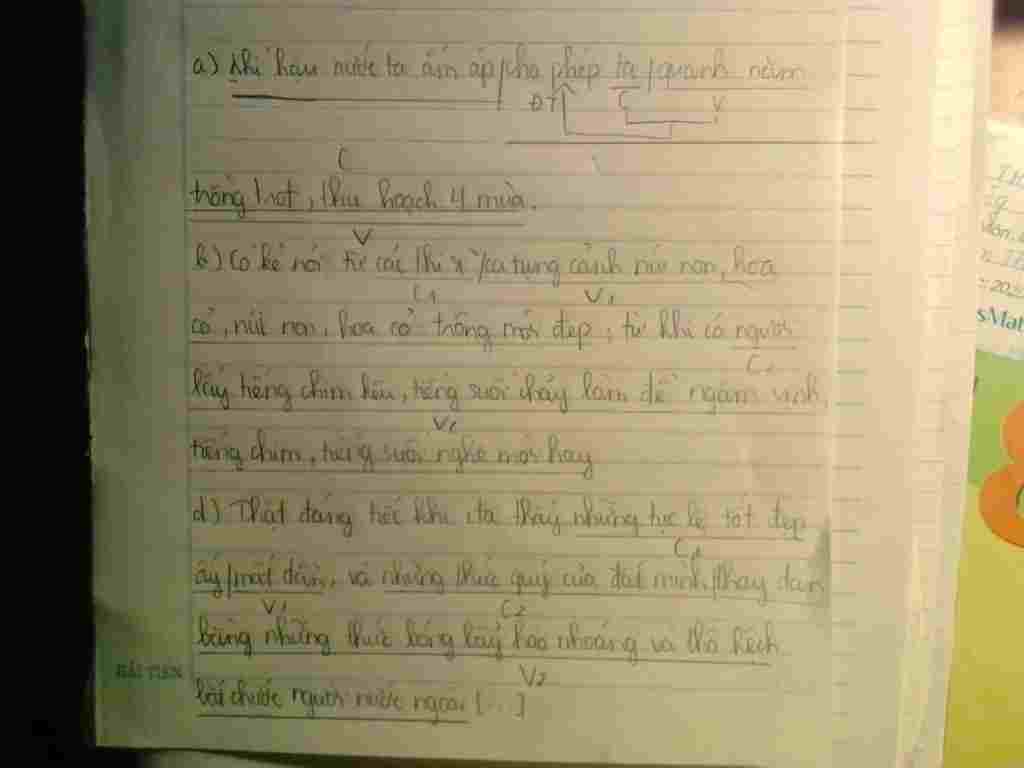 a) Khí hậu nước ta ấm áp/cho phép ta/quanh năm
ĐT C V
C
trồng trọt, thu hoạch 4 mùa.
V
b) Có kẻ nói từ các thi sĩ/ca tụng cảnh núi non, hoa
C1 V1
cỏ, núi non, hoa cỏ trông mới đẹp; từ khi có người
C2
lấy tiếng chim kêu, tiếng suối chảy làm đề ngâm vịnh
V2
tiếng chim, tiếng suối nghe mới hay
d) Thật đáng tiếc khi ta thấy những tục lệ tốt đẹp
C1
ấy/mất dần, và những thức quý của đất mình/thay dần
V1 C2
bằng những thức bóng bẩy hào nhoáng và thô kệch
V2
bắt chước người nước ngoài [...]
HẢI TIẾN
2022
sMat